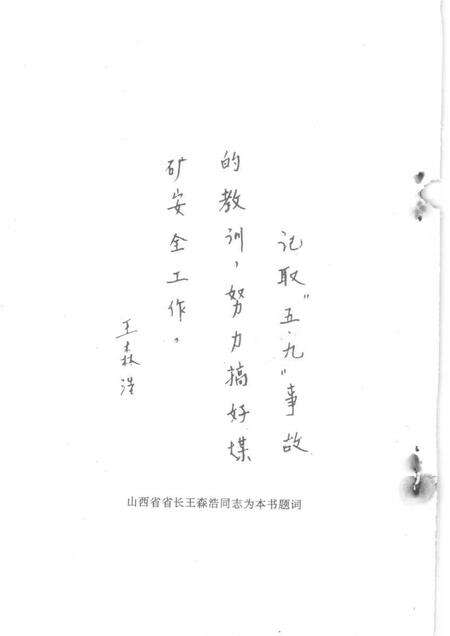 记取"五·九"事故
的教训，努力搞好煤
矿安全工作。
王森浩
山西省省长王森浩同志为本书题词